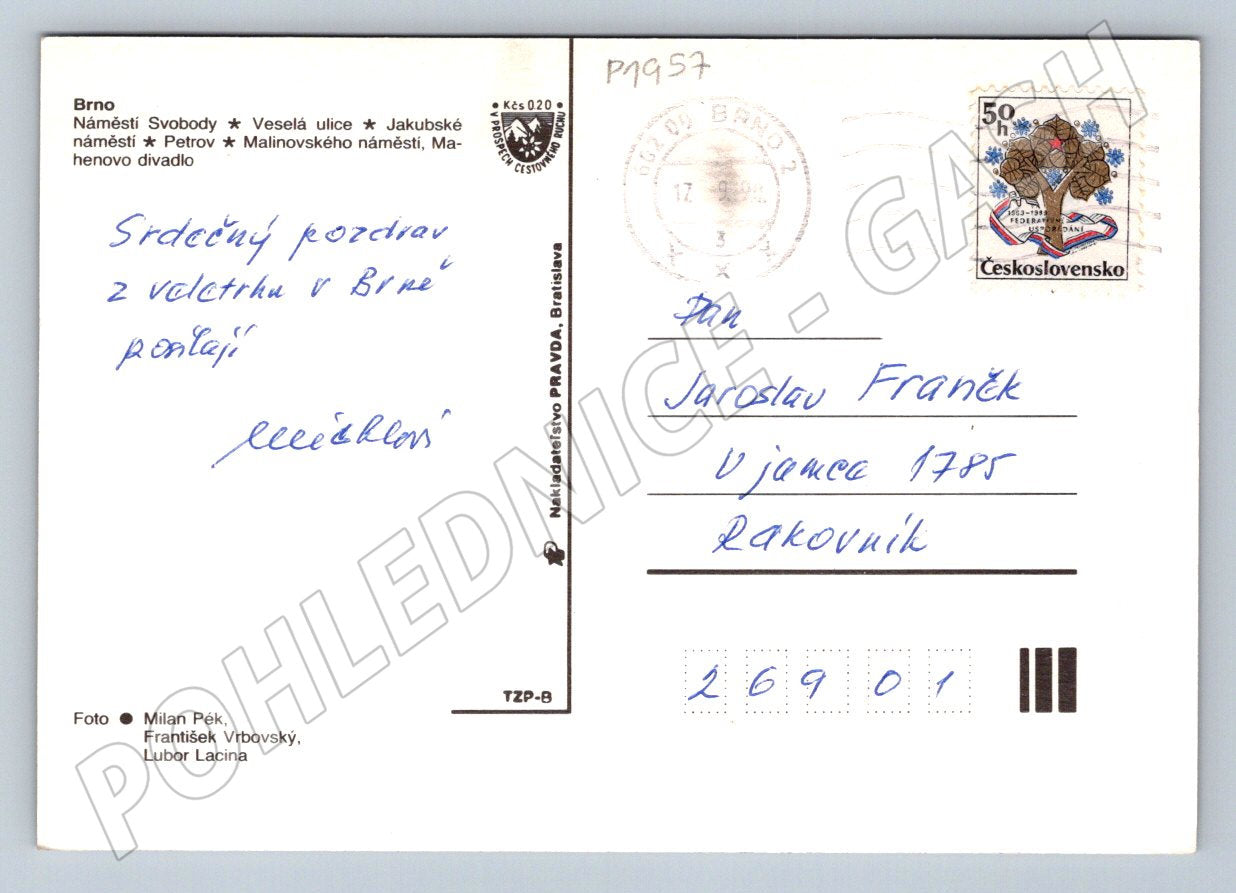 P1957
Brno
Náměstí Svobody ★ Veselá ulice ★ Jakubské
náměstí ★ Petrov ★ Malinovského náměstí, Ma-
henovo divadlo
• Kčs 0.20 •
V PROSPECH CESTOVNÉHO RUCHU
Srdečný pozdrav
z veletrhu v Brně
posílají
Nakladateľstvo PRAVDA, Bratislava
TZP-B
Foto ● Milan Pék,
František Vrbovský,
Lubor Lacina
602 00 BRNO 2
17.
50 h
1968-1988
FEDERATIVNÍ
USPOŘÁDÁNÍ
Československo
Pan
Jaroslav Franěk
V jamce 1785
Rakovník
269 01
POHLEDNICE - GACH